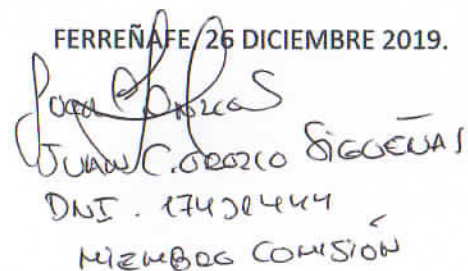 FERREÑAFE, 26 DICIEMBRE 2019.
Juan C. Orozco S
JUAN C. OROZCO SIGÜEÑAS
DNI. 17430444
MIEMBRO COMISIÓN